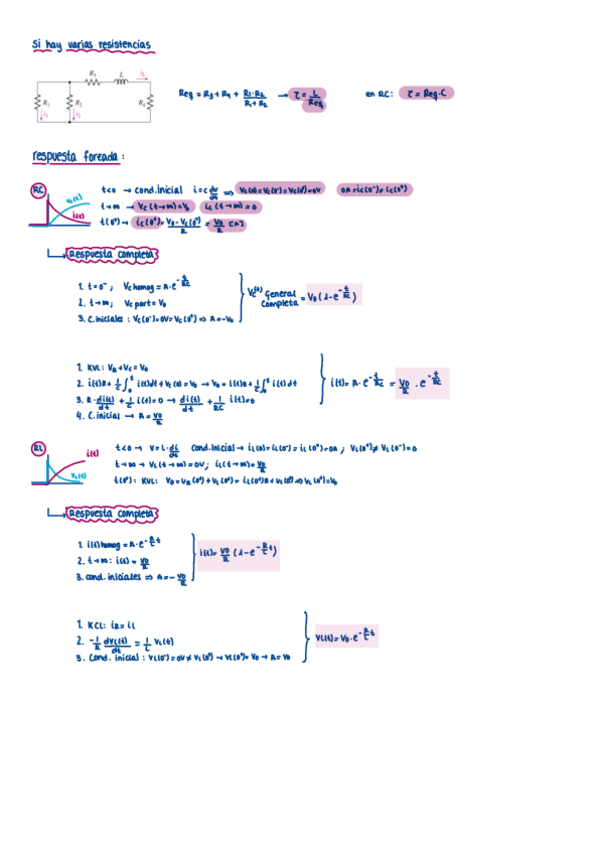 si hay varias resistencias
R3 L iL
R1 R2 R4
i1 i2
Req = R3 + R4 + R1·R2 / R1+R2 → τ = L/Req en RC: τ = Req·C
respuesta forzada:
RC
vc(t)
i(t)
t<0 → cond.inicial i=c dv/dt ⇒ Vc(0)=Vc(0⁻)=Vc(0⁺)=0V 0A=ic(0⁻)≠ic(0⁺)
t→∞ → Vc(t→∞)=V0 ic(t→∞)=0
t(0⁺) → ic(0⁺)= V0-Vc(0⁺)/R = V0/R [A]
Respuesta completa
1. t=0⁻; Vc homog = A·e^-t/RC
2. t→∞; Vc part = V0
3. C.iniciales: Vc(0⁻)=0V=Vc(0⁺) ⇒ A=-V0
Vc(t) General Completa = V0(1-e^-t/RC)
1. KVL: VR+Vc=V0
2. i(t)R+1/C ∫0^t i(t)dt+Vc(0)=V0 → V0=i(t)R+1/C ∫0^t i(t)dt
3. R·di(t)/dt + 1/C i(t)=0 → di(t)/dt + 1/RC i(t)=0
4. C.inicial → A=V0/R
i(t)= A·e^-t/RC = V0/R · e^-t/RC
RL
i(t)
vL(t)
t<0 → V=L·di/dt Cond.inicial → iL(0)=iL(0⁻)=iL(0⁺)=0A; VL(0⁺)≠VL(0⁻)=0
t→∞ → VL(t→∞)=0V; iL(t→∞)=V0/R
t(0⁺): KVL: V0=VR(0⁺)+VL(0⁺)= iL(0⁺)R+VL(0⁺) ⇒ VL(0⁺)=V0
Respuesta completa
1. i(t)homog = A·e^-R/L t
2. t→∞: i(t)=V0/R
3. cond.iniciales ⇒ A=-V0/R
i(t)= V0/R (1-e^-R/L t)
1. KCL: iR=iL
2. -1/R dVL(t)/dt = 1/L VL(t)
3. Cond. inicial: VL(0⁻)=0V≠VL(0⁺) → VL(0⁺)=V0 → A=V0
VL(t)=V0·e^-R/L t